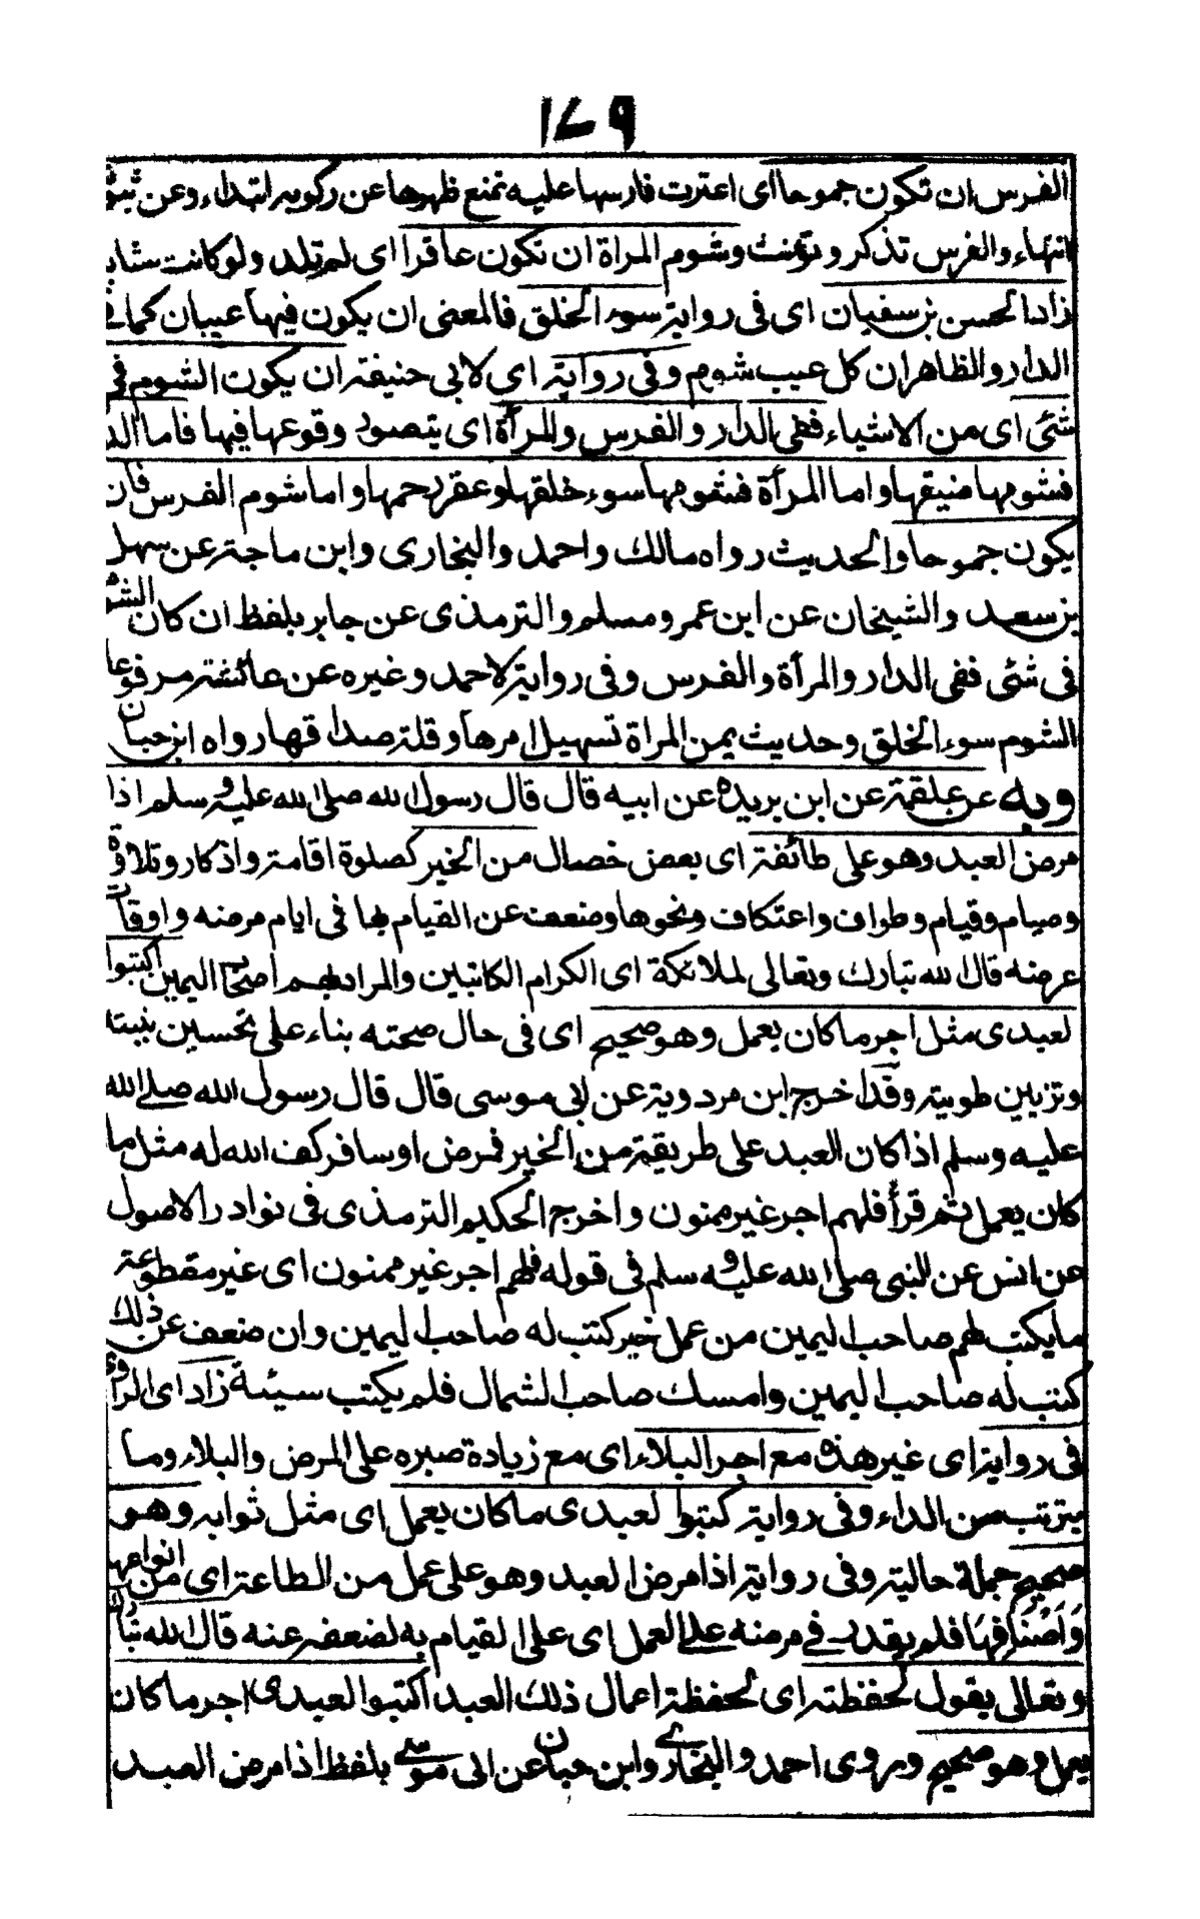 ١٧٩
الفرس ان تكون جموحا اى اعترت فارسها عليه تمنع ظهرها عن ركوبه ابتداء وعن
انتهاء والفرس تذكر وتؤنث وشوم المراة ان تكون عاقرا اى لم تلد ولو كانت شابة
زاد الحسن بن سفيان اى فى رواية سوء الخلق فالمعنى ان يكون فيها عيبان كما فى
الدار والظاهر ان كل عيب شوم وفى رواية اى لابى حنيفة ان يكون الشوم فى
شئى اى من الاشياء ففى الدار والفرس والمرأة اى يتصور وقوعها فيها فاما الدار
فشومها ضيقها واما المرأة فشومها سوء خلقها وعقر رحمها واما شوم الفرس فان
يكون جموحا والحديث رواه مالك واحمد والبخارى وابن ماجة عن سهل
بن سعد والشيخان عن ابن عمر ومسلم والترمذى عن جابر بلفظ ان كان الشوم
فى شئى ففى الدار والمرأة والفرس وفى رواية لاحمد وغيره عن عائشة مرفوعا
الشوم سوء الخلق وحديث يمن المراة تسهيل امرها وقلة صداقها رواه ابن حبان
وبه عن علقمة عن ابن بريده عن ابيه قال قال رسول الله صلى الله عليه وسلم اذا
مرض العبد وهو على طائفة اى بعض خصال من الخير كصلوة اقامة واذكار وتلاوة
وصيام وقيام وطواف واعتكاف ونحوها وضعف عن القيام بها فى ايام مرضه واوقات
عرضه قال الله تبارك وتعالى لملائكة اى الكرام الكاتبين والمراد بهم اصحاب اليمين اكتبوا
لعبدى مثل اجر ما كان يعمل وهو صحيح اى فى حال صحته بناء على تحسين نيته
وتزيين طويته وقد اخرج ابن مردوية عن ابى موسى قال قال رسول الله صلے الله
عليه وسلم اذا كان العبد على طريقة من الخير فمرض او سافر كف الله له مثل ما
كان يعمل ثم قرأ فلهم اجر غير ممنون واخرج الحكيم الترمذى فى نوادر الاصول
عن انس عن النبى صلى الله عليه وسلم فى قوله فلهم اجر غير ممنون اى غير مقطوعة
ما يكتب لهم صاحب اليمين من عمل خير كتب له صاحب اليمين وان ضعف عن ذلك
كتب له صاحب اليمين وامسك صاحب الشمال فلم يكتب سيئة زاد اى الراوى
فى رواية اى غير هذه مع اجر البلاء اى مع زيادة صبره على المرض والبلاء وما
يترتب من الداء وفى رواية كتبوا لعبدى ما كان يعمل اى مثل ثوابه وهو
صحيح جملة حالية وفى رواية اذا مرض العبد وهو على عمل من الطاعة اى من انواعها
وَاَصْنَافِهَا فلم يقدر فے مرضه علے العمل اى على القيام به لضعفه عنه قال الله تبارك
وتعالى يقول لحفظته اى لحفظة اعمال ذلك العبد اكتبوا لعبدى اجر ما كان
يعمل وهو صحيح وروى احمد والبخارے وابن حبان عن ابى موسے بلفظ اذا مرض العبد